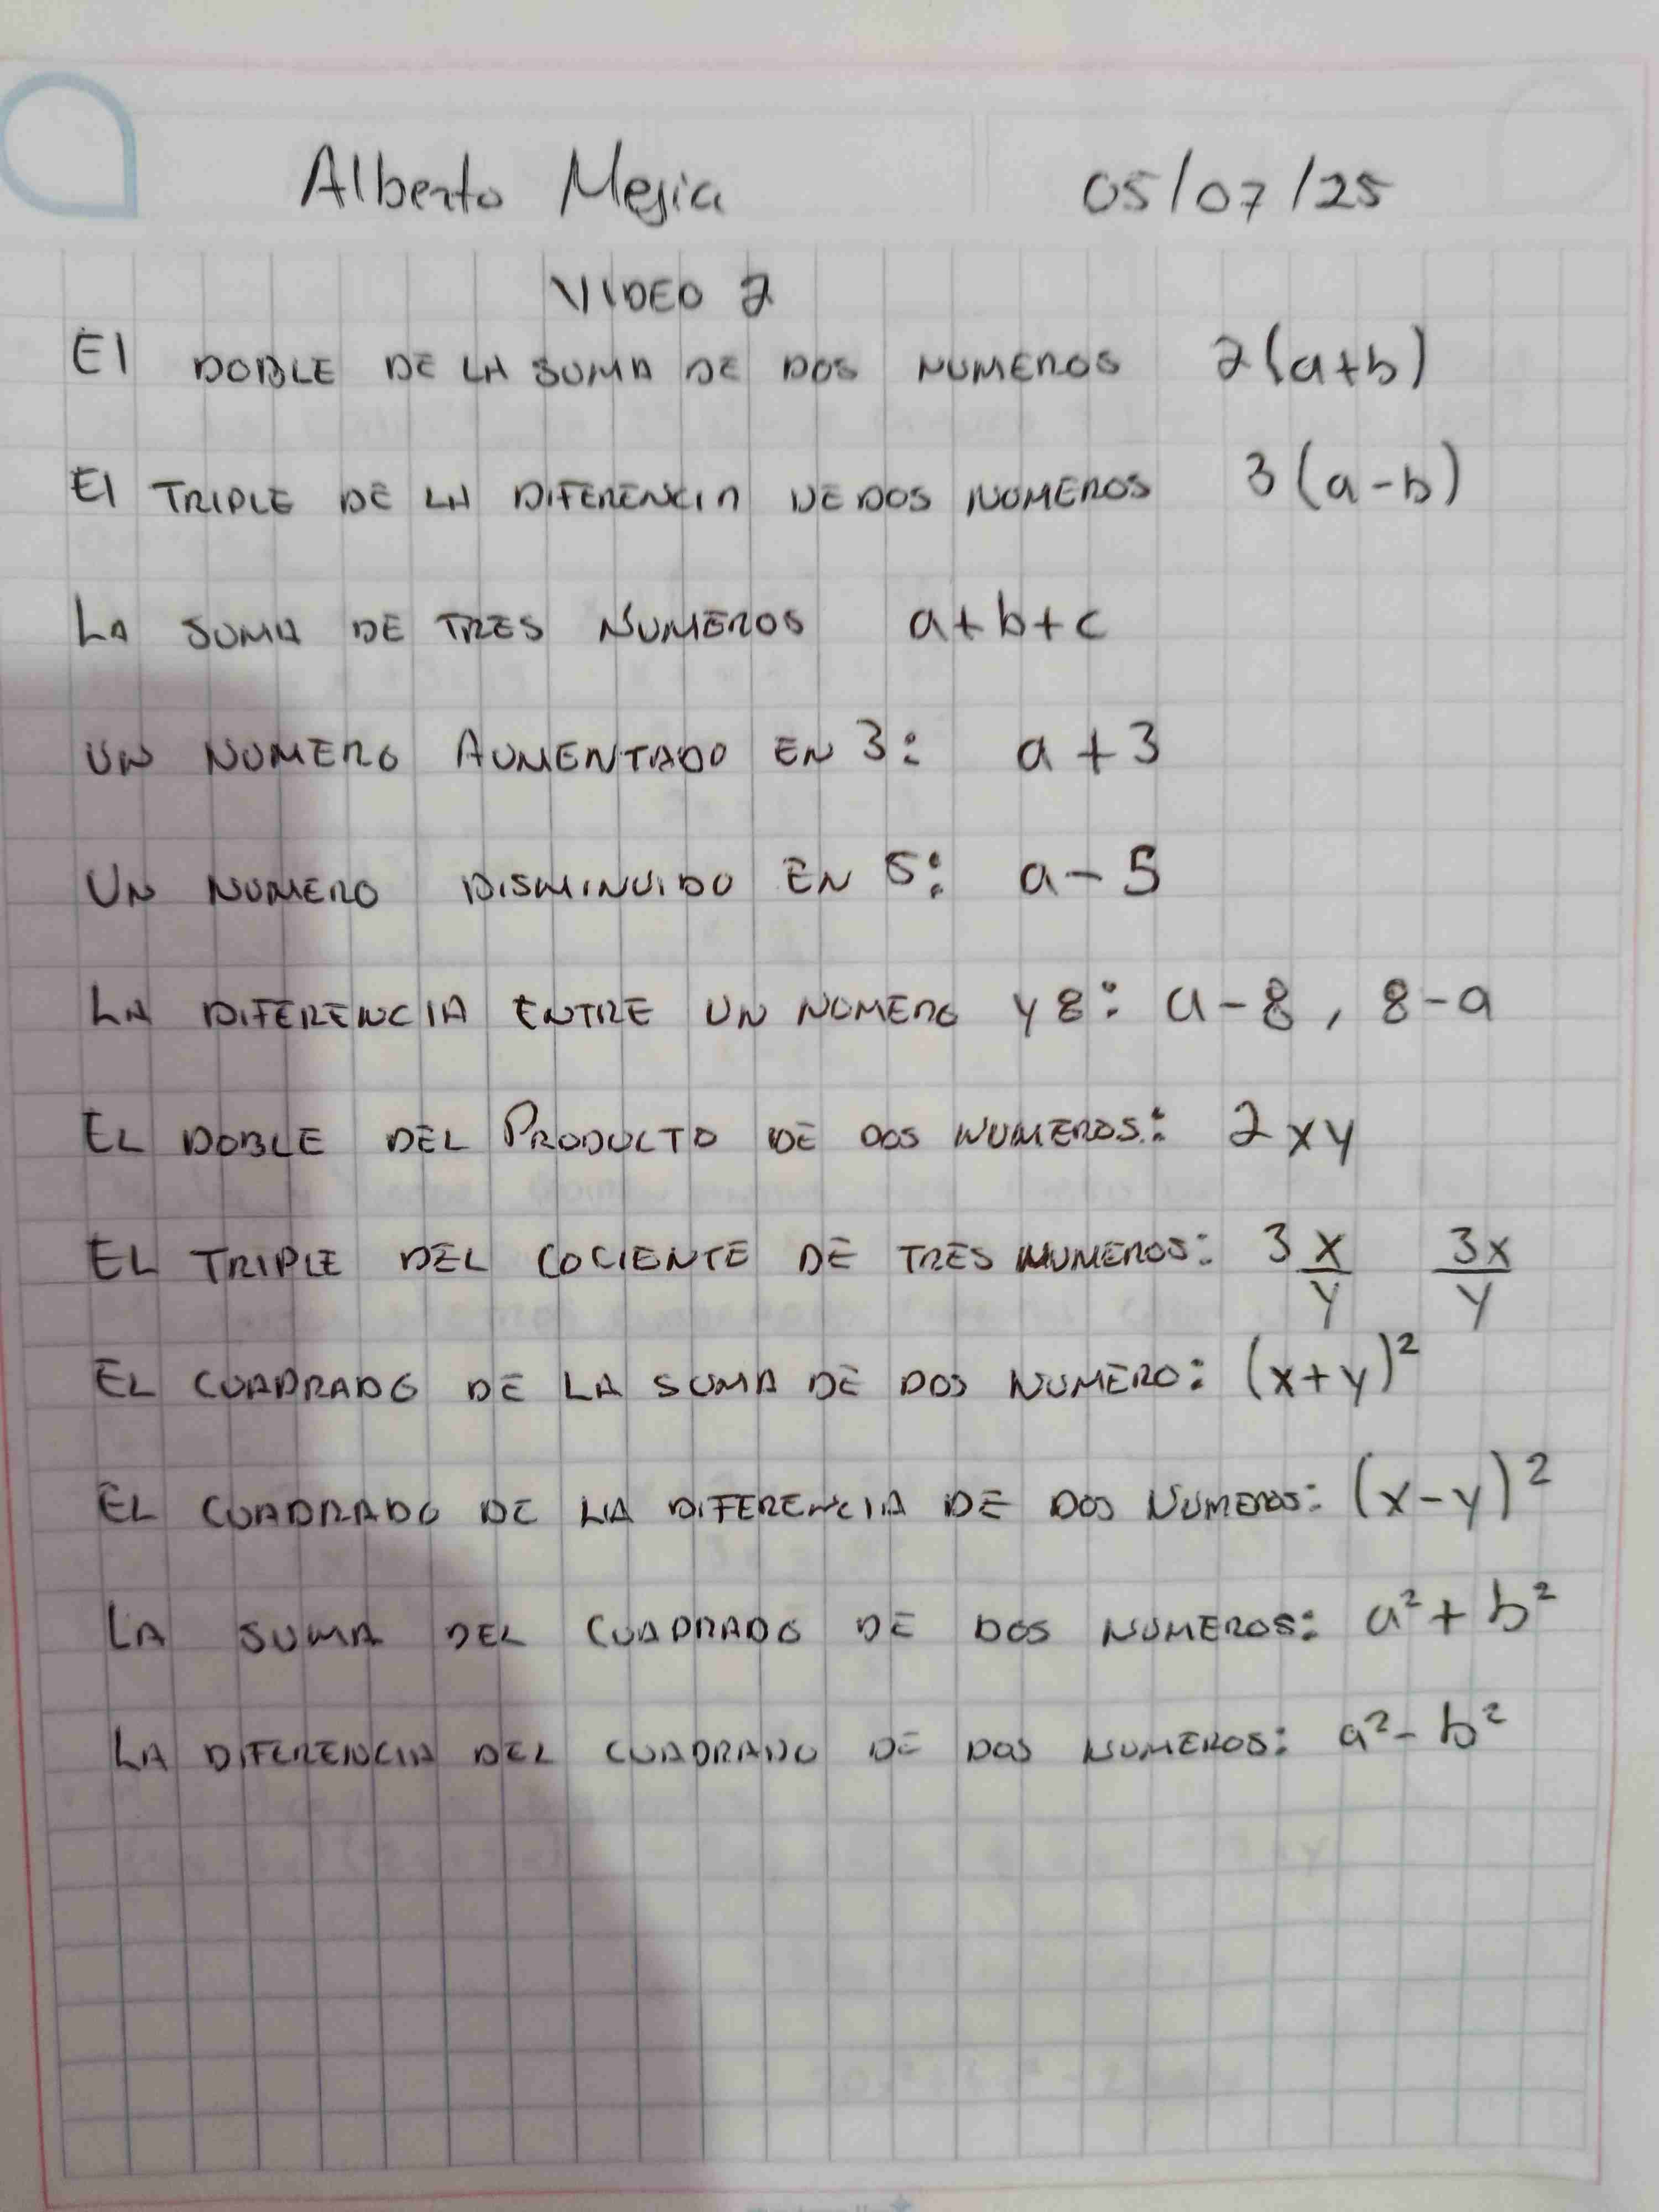 Alberto Mejia 05/07/25
VIDEO 2
El DOBLE DE LA SUMA DE DOS NUMEROS 2(a+b)
El TRIPLE DE LA DIFERENCIA DE DOS NUMEROS 3(a-b)
LA SUMA DE TRES NUMEROS a+b+c
UN NUMERO AUMENTADO EN 3: a+3
UN NUMERO DISMINUIDO EN 5: a-5
LA DIFERENCIA ENTRE UN NUMERO Y 8: a-8, 8-a
EL DOBLE DEL PRODUCTO DE DOS NUMEROS: 2xy
EL TRIPLE DEL COCIENTE DE TRES NUMEROS: 3 x/y 3x/y
EL CUADRADO DE LA SUMA DE DOS NUMERO: (x+y)²
EL CUADRADO DE LA DIFERENCIA DE DOS NUMEROS: (x-y)²
LA SUMA DEL CUADRADO DE DOS NUMEROS: a²+b²
LA DIFERENCIA DEL CUADRADO DE DOS NUMEROS: a²-b²